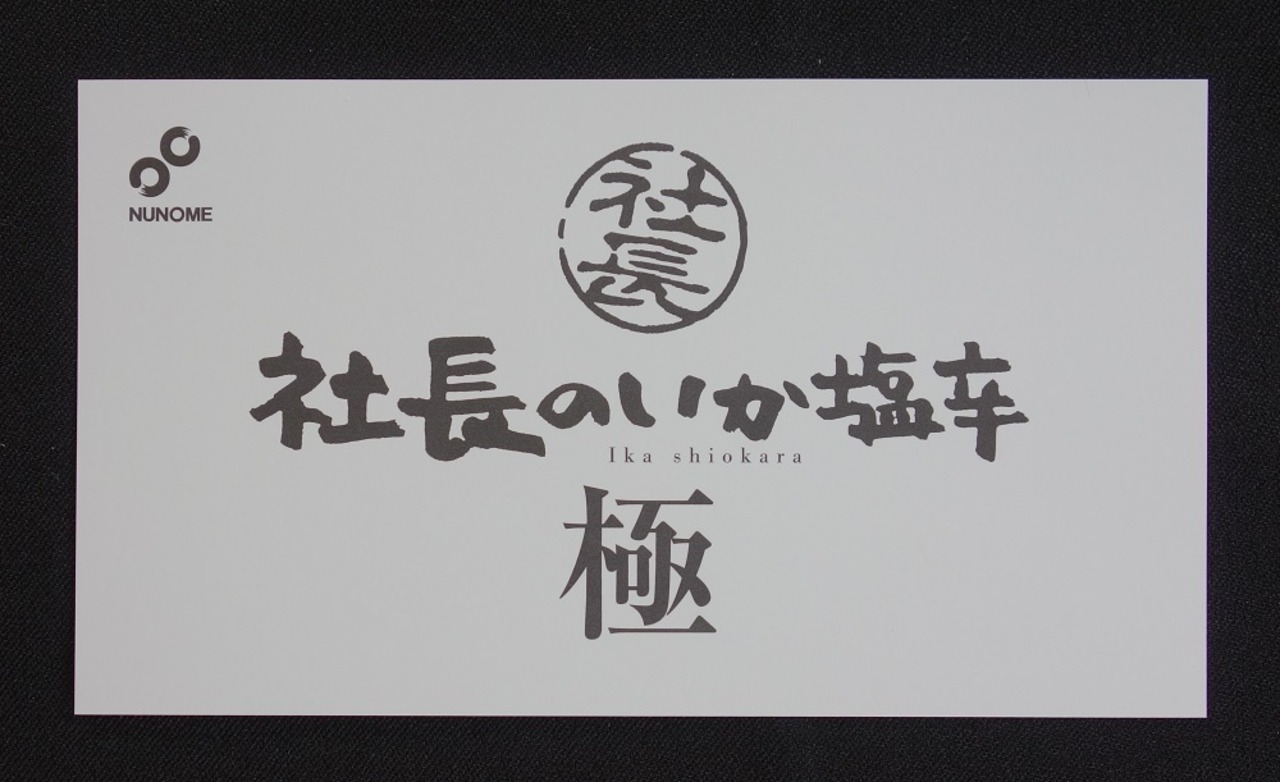 NUNOME
社長
社長のいか塩辛
Ika shiokara
極